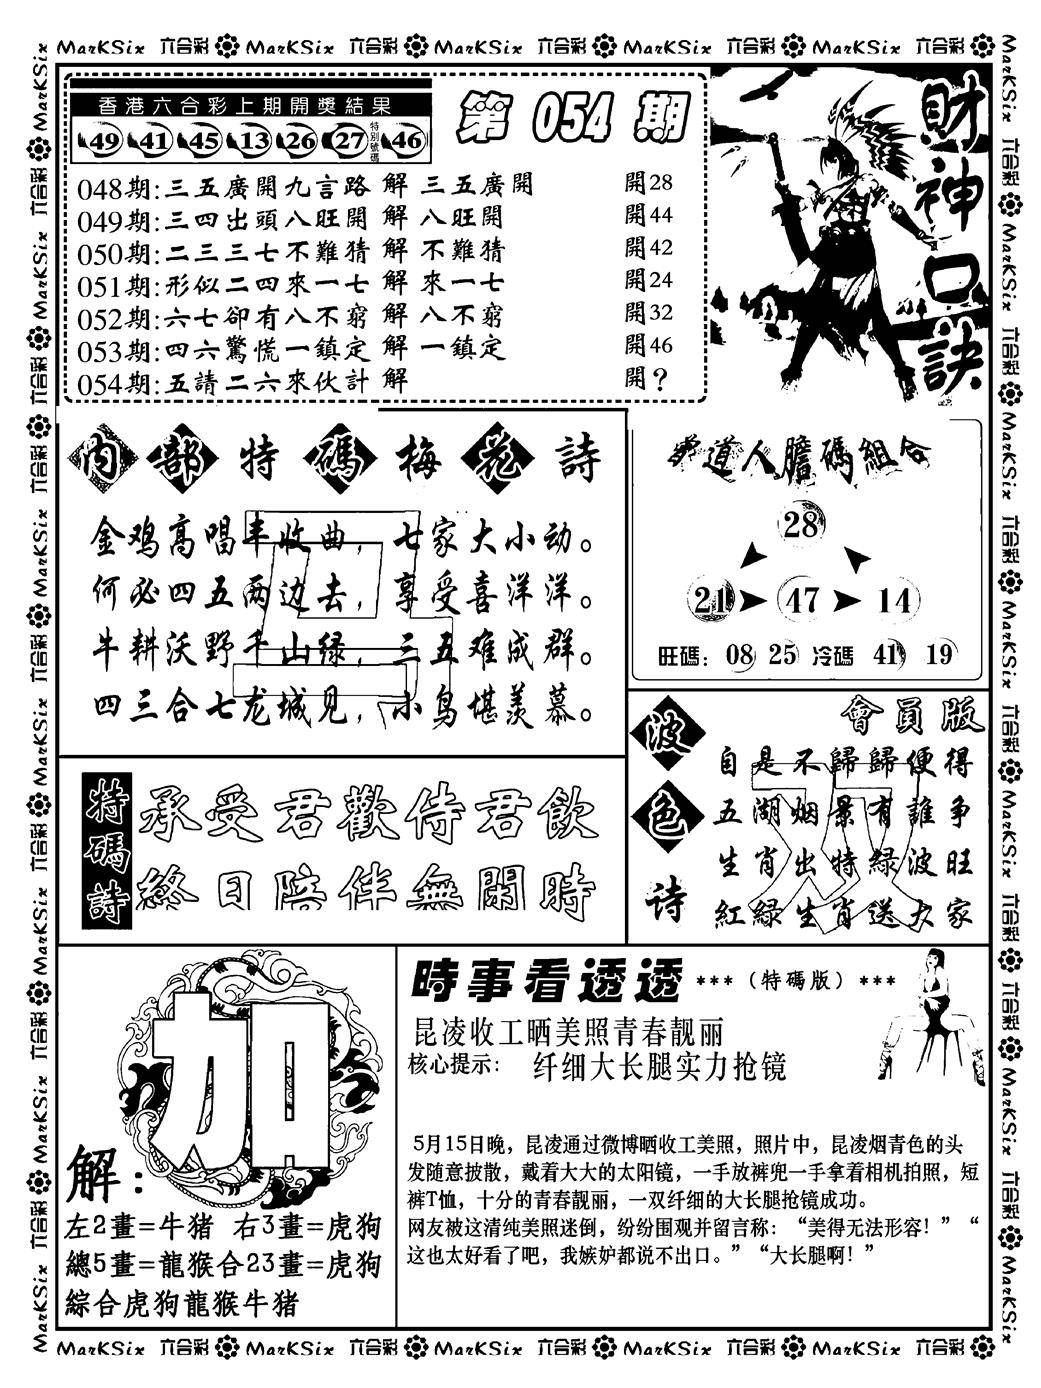 MarKSix 六合彩 MarKSix 六合彩 MarKSix 六合彩 MarKSix 六合彩 MarKSix 六合彩
香港六合彩上期開獎結果
49 41 45 13 26 27 特別號碼 46
第 054 期
048期:三五廣開九言路 解 三五廣開 開28
049期:三四出頭八旺開 解 八旺開 開44
050期:二三三七不難猜 解 不難猜 開42
051期:形似二四來一七 解 來一七 開24
052期:六七卻有八不窮 解 八不窮 開32
053期:四六驚慌一鎮定 解 一鎮定 開46
054期:五請二六來伙計 解 開?
財神口訣
內部特碼梅花詩
金鸡高唱丰收曲，七家大小动。
何必四五两边去，享受喜洋洋。
牛耕沃野千山绿，三五难成群。
四三合七龙城见，小鸟堪羡慕。
道人膽碼組合
28
21 47 14
旺碼: 08 25 冷碼 41 19
特碼詩
承受君歡侍君飲
終日陪伴無閑時
波色诗
會員版
自是不歸歸便得
五湖烟景有誰争
生肖出特緑波旺
紅緑生肖送大家
双
加
解:
左2畫=牛猪 右3畫=虎狗
總5畫=龍猴合23畫=虎狗
綜合虎狗龍猴牛猪
時事看透透 ***（特碼版）***
昆凌收工晒美照青春靓丽
核心提示: 纤细大长腿实力抢镜
5月15日晚，昆凌通过微博晒收工美照，照片中，昆凌烟青色的头
发随意披散，戴着大大的太阳镜，一手放裤兜一手拿着相机拍照，短
裤T恤，十分的青春靓丽，一双纤细的大长腿抢镜成功。
网友被这清纯美照迷倒，纷纷围观并留言称：“美得无法形容！”“
这也太好看了吧，我嫉妒都说不出口。”“大长腿啊！”
MarKSix 六合彩 MarKSix 六合彩 MarKSix 六合彩 MarKSix 六合彩 MarKSix 六合彩